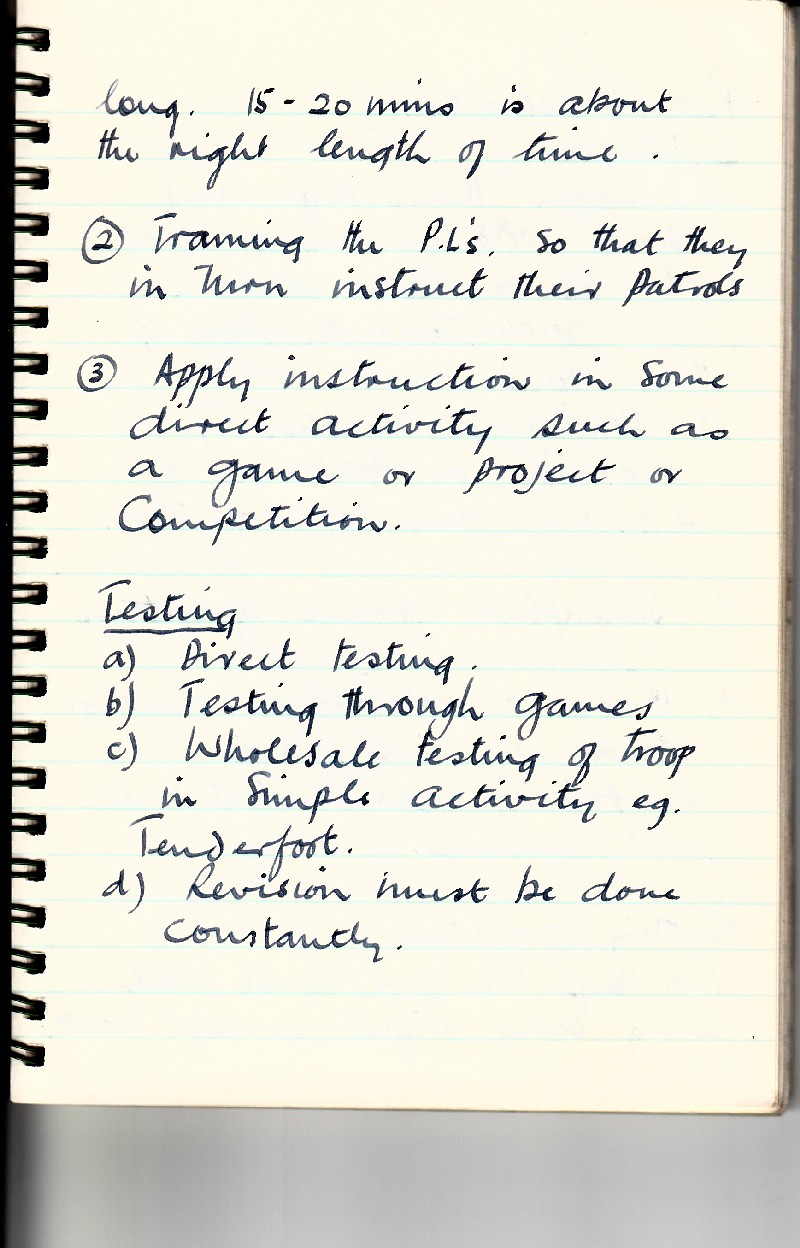 long. 15-20 mins is about
the right length of time.
② Training the P.L's. So that they
in turn instruct their Patrols
③ Apply instruction in some
direct activity such as
a game or project or
Competition.
Testing
a) Direct testing.
b) Testing through games
c) Wholesale testing of Troop
in Simple activity eg.
Tenderfoot.
d) Revision must be done
constantly.